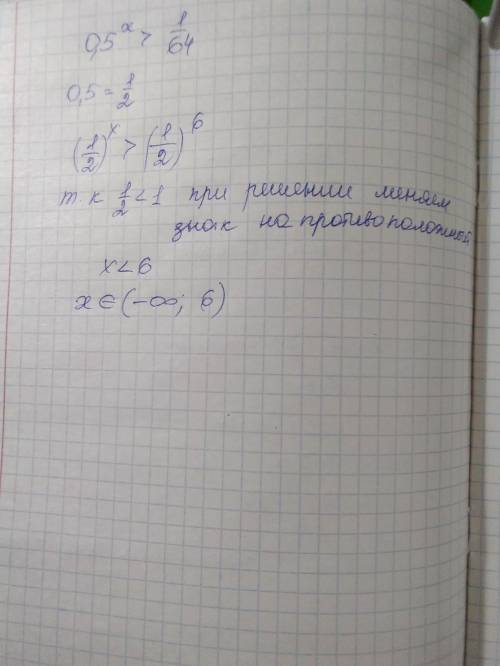 0,5^x > 1/64
0,5 = 1/2
(1/2)^x > (1/2)^6
т.к 1/2 < 1 при решении меняем
знак на противоположный
x < 6
x ∈ (-∞; 6)